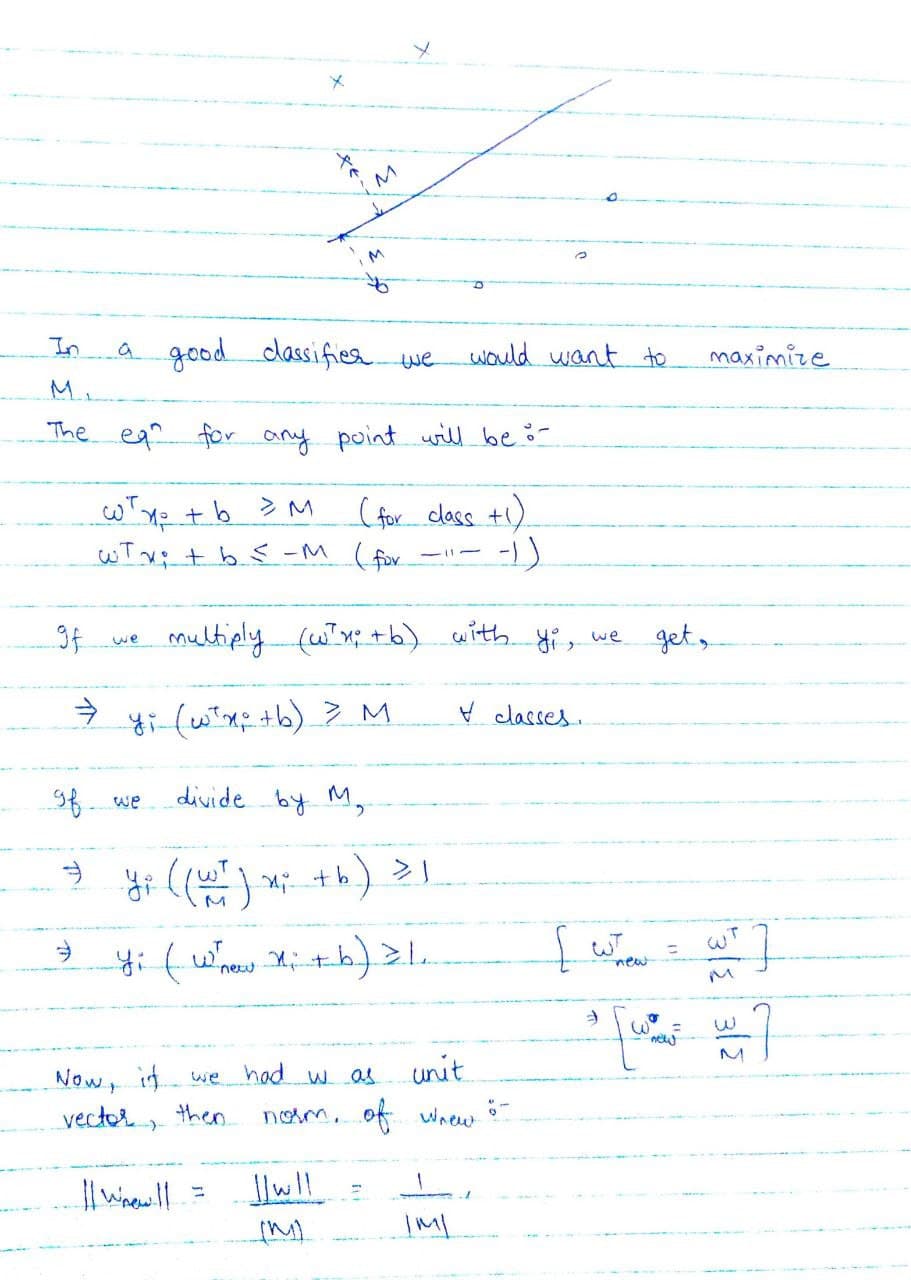 x
x
x
M
M
In a good classifier we would want to maximize
M.
The eqⁿ for any point will be :-
wᵀxᵢ + b ≥ M (for class +1)
wᵀxᵢ + b ≤ -M (for —"— -1)
If we multiply (wᵀxᵢ + b) with yᵢ, we get,
⇒ yᵢ (wᵀxᵢ + b) ≥ M ∀ classes.
If we divide by M,
⇒ yᵢ ((wᵀ/M) xᵢ + b) ≥ 1
⇒ yᵢ (wᵀnew xᵢ + b) ≥ 1. [wᵀnew = wᵀ/M]
⇒ [wnew = w/M]
Now, if we had w as unit
vector, then norm. of wnew :-
||wnew|| = ||w||/|M| = 1/|M|,